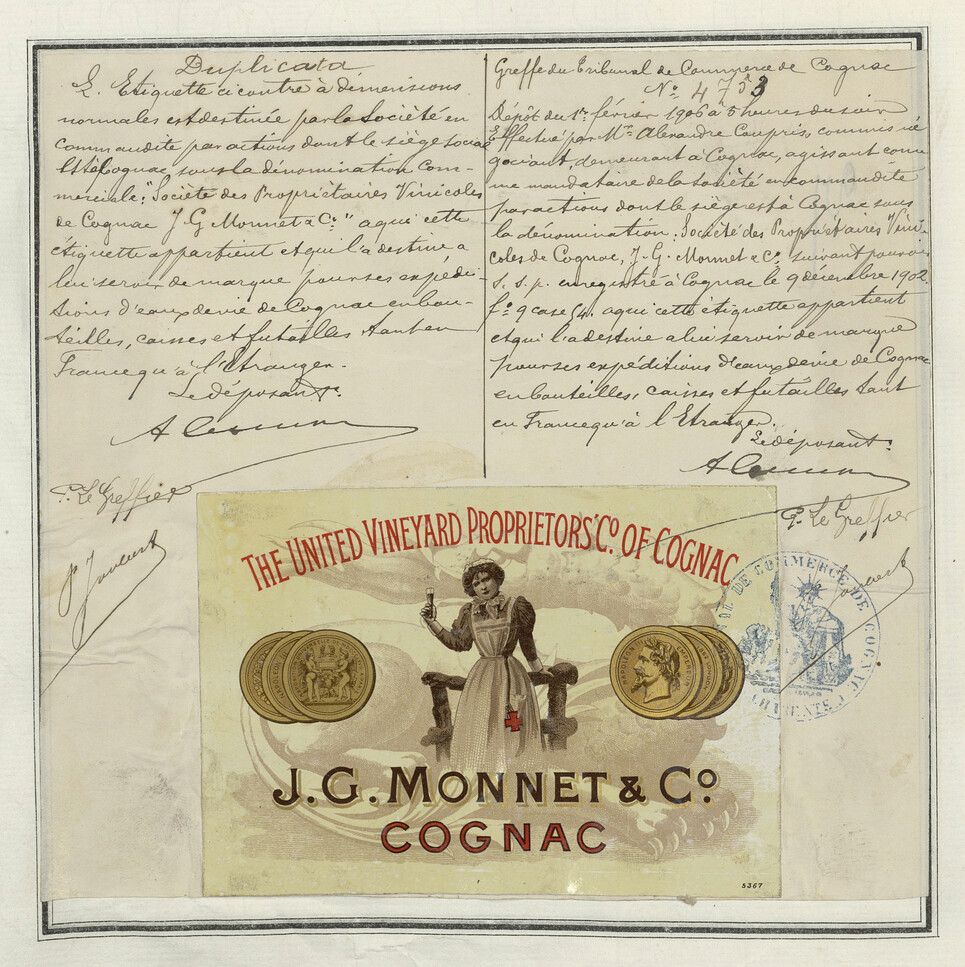 Duplicata
L'Etiquette ci contre à dimensions
normales est destinée par la Société en
commandite par actions dont le siège social
est à Cognac, sous la dénomination com-
merciale: "Société des Propriétaires Vinicoles
de Cognac J. G. Monnet & Cº" a qui cette
étiquette appartient et qui l'a destine a
lui servir de marque pour ses expédi-
tions d'eaux de vie de Cognac en bou-
teilles, caisses et futailles tant en
France qu'à l'Etranger.
Le déposant:
P. Le Greffier
Greffe du Tribunal de Commerce de Cognac
Nº 4753
Dépôt du 1er février 1906 à 5 heures du soir
Effectué par Mr Alexandre Caupris, commis né
gociant, demeurant à Cognac, agissant com
me mandataire de la société en commandite
par actions dont le siège est à Cognac sous
la dénomination: Société des Propriétaires Vini-
coles de Cognac, J. G. Monnet & Cº suivant pouvoir
s. s. p. enregistré à Cognac le 9 décembre 1902.
fº 9 case 54. a qui cette étiquette appartient
et qui l'a destine a lui servir de marque
pour ses expéditions d'eaux de vie de Cognac
en bouteilles, caisses et futailles tant
en France qu'à l'Etranger.
Le déposant:
P. Le Greffier
THE UNITED VINEYARD PROPRIETORS' Cº OF COGNAC
J. G. MONNET & Cº
COGNAC
5367
DE COMMERCE DE COGNAC